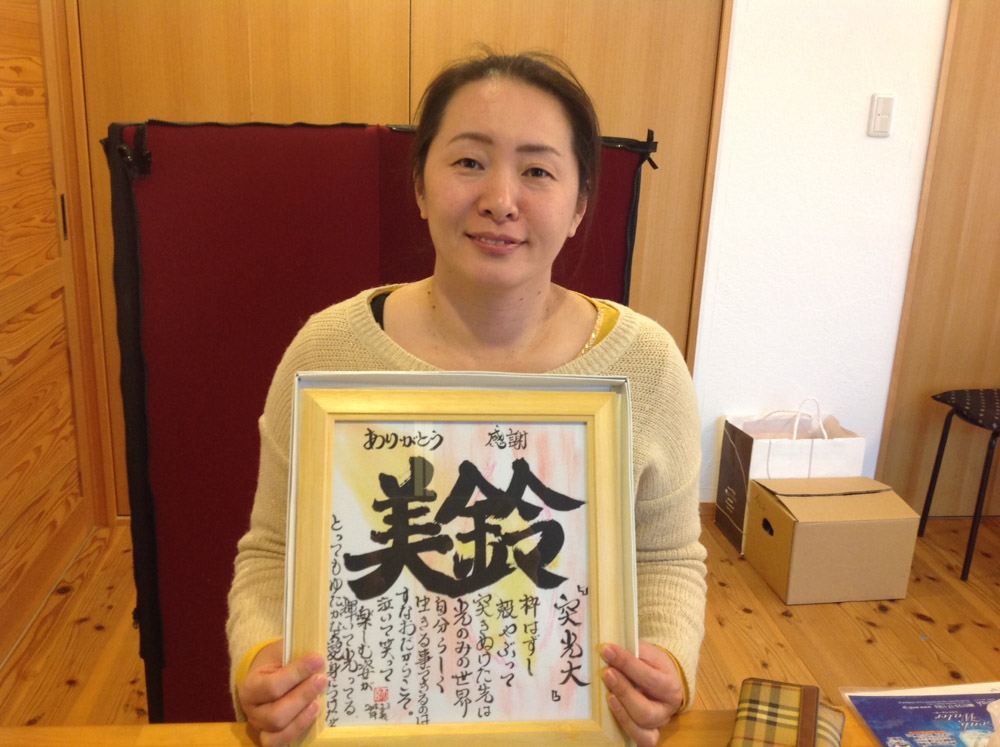 ありがとう 感謝
美鈴
『突光大』
枠はずし
殻やぶって
突きぬけた先は
光のみの世界
自分らしく
生きる事できるのは
すなおだからこそ。
泣いて笑って
楽しむ姿が
輝いて光ってる
とってもゆたかな愛身につけ